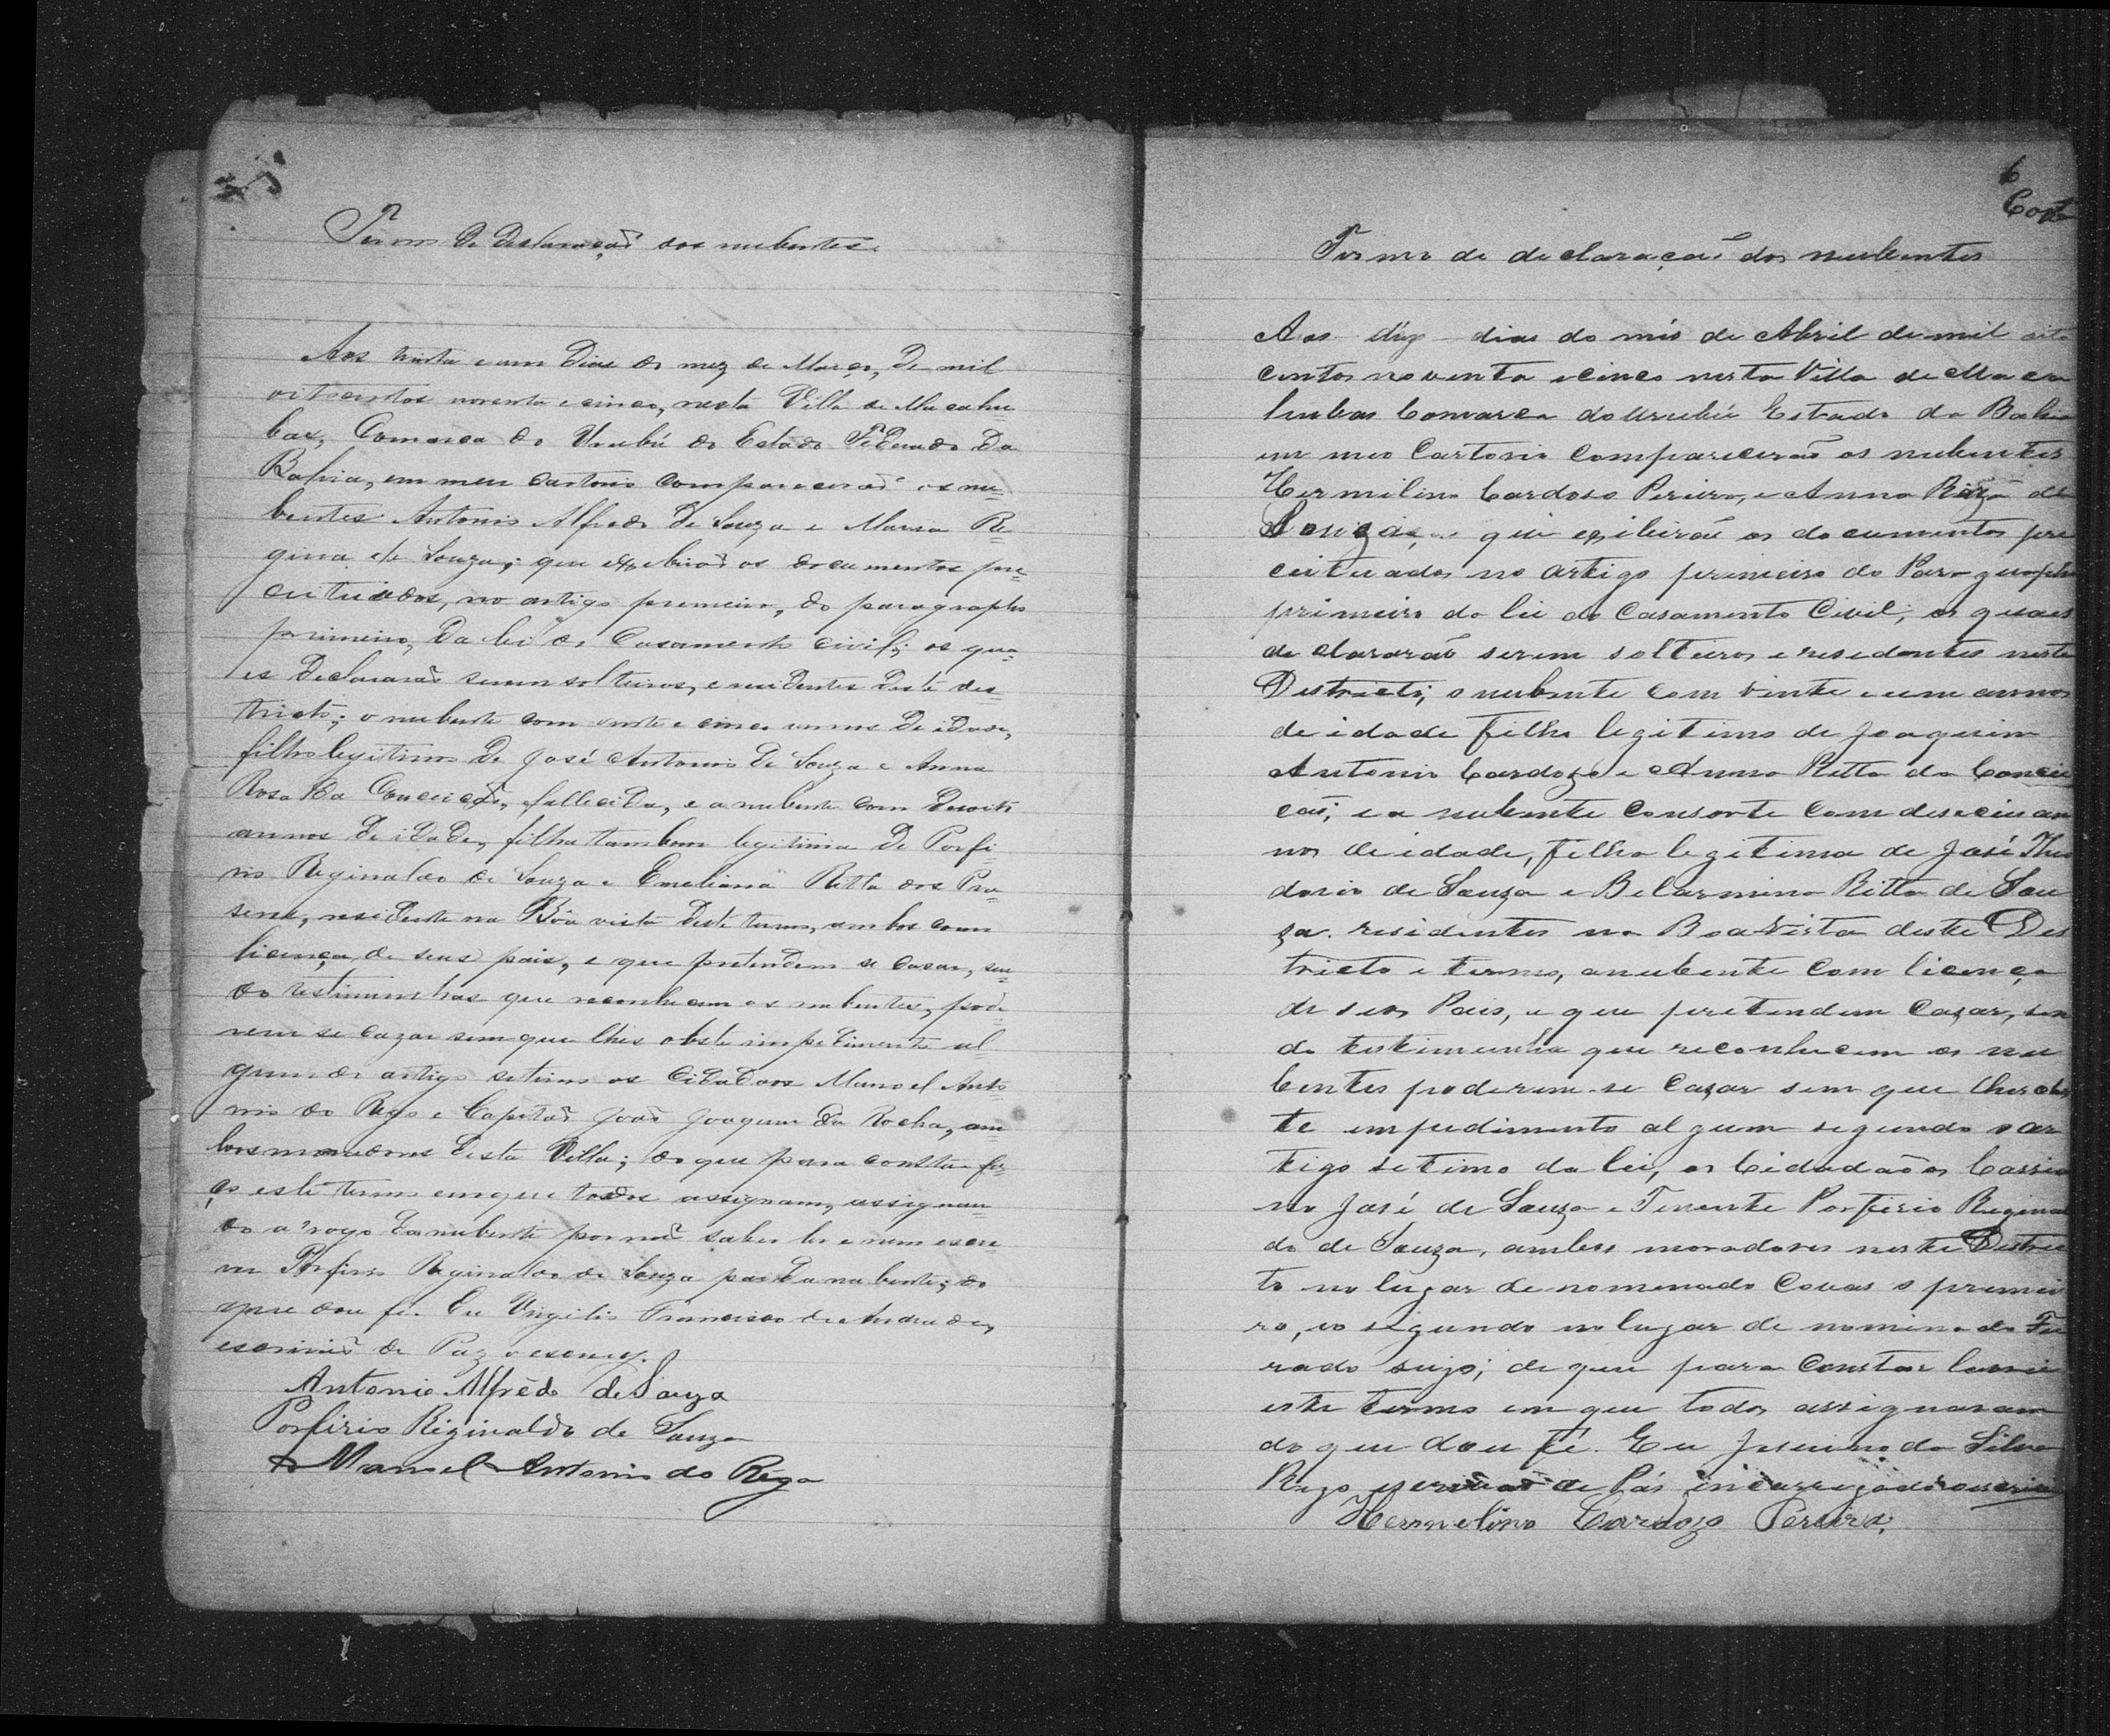 Termo de declaração dos nubentes.
Aos trinta e um dias do mez de Março, de mil
oitocentos noventa e cinco, nesta Villa de Macahu
bas, Comarca do Urubú do Estado Federado da
Bahia, em meu cartorio comparecerão os nu=
bentes Antonio Alfredo de Souza e Maria Re=
gina de Souza; que exebirão os documentos pre=
ceituados, no artigo primeiro, do paragrapho
primeiro, da lei do Casamento civil; os qua=
es declararão serem solteiros, e residentes deste des=
tricto; o nubente com vinte e cinco annos de idade,
filho legitimo de José Antonio de Souza e Anna
Rosa da Conceição, fallecida, e a nubente com desoito
annos de idade, filha tambem legitima de Porfi=
rio Reginaldo de Souza e Emeliana Ritta dos Pra
seres, residente na Bôa vista deste termo, ambos com
licença de seus pais, e que pretendem se casar, sen=
do testimunhas que reconhecem os nubentes, pode=
rem se cazar sem que lhes obste impedimento al=
gum do artigo setimo os cidadãos Manoel Anto=
nio do Rego e Capitão João Joaquim da Rocha, am=
bos moradores desta Villa; do que para constar fa=
ço este termo em que todos assignam, assignan=
do a rogo da nubente por não saber ler e nem escre=
ver Porfirio Reginaldo de Souza pai da nubente; do
que dou fé. Eu Virgilio Francisco de Andrade,
escrivão de Paz o escrevy.
Antonio Alfrêdo de Souza
Porfirio Riginaldo de Souza
Manoel Antonio do Rego
6
Termo de declaração dos nubentes
Aos dez dias do mês de Abril de mil oito
centos noventa e cinco nesta Villa de Maca
hubas Comarca do Urubú Estado da Bahia
em meo Cartorio Comparecerão os nubentes
Hermilino Cardoso Pereira, e Anna Roza de
Souza, que exibirão os documentos pre
ceituados no artigo primeiro do Paragrapho
primeiro da lei do Casamento Civil; os quaes
declararão serem solteiros e resedentes neste
Districto; o nubente com vinte e um annos
de idade filho legitimo de Joaquim
Antonio Cardozo e Anna Ritta da Concei
cão; e a nubente consorte com deseceis an
nos de idade, filha legitima de José Theo
dorio de Souza e Belarmina Ritta de Sou
za. residentes na Boa Vista deste Des
tricto e termo, a nubente com licença
de seos Pais, e que pretendem Cazar, sen
do testimunha que reconhecem os nu
bentes poderem-se Cazar sem que lhes obs
te empedimento algum segundo o ar
tigo setimo da lei, os Cidadãos Cassia
no José de Souza e Tenente Porfirio Regina
do de Souza, ambos moradores neste Distric
to no lugar denomenado Covas o primei
ro, eo segundo no lugar denominado Fu
rado sujo; de que para Constar lavrei
este termo em que todos assignaram
do que dou fé. Eu Jesuino da Silva
Rego escrivão de Pás incarregado o escrevi
Hermelino Cardozo Pereira.